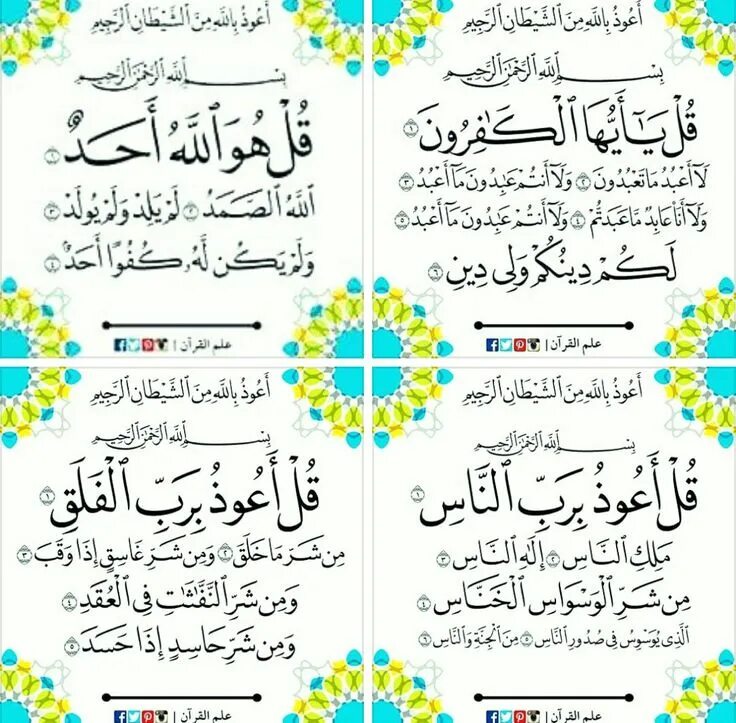 أَعُوذُ بِاللَّهِ مِنَ الشَّيْطَانِ الرَّجِيمِ
بِسْمِ ٱللَّهِ ٱلرَّحْمَٰنِ ٱلرَّحِيمِ
قُلْ يَٰٓأَيُّهَا ٱلْكَٰفِرُونَ ١
لَآ أَعْبُدُ مَا تَعْبُدُونَ ٢ وَلَآ أَنتُمْ عَٰبِدُونَ مَآ أَعْبُدُ ٣
وَلَآ أَنَا۠ عَابِدٌ مَّا عَبَدتُّمْ ٤ وَلَآ أَنتُمْ عَٰبِدُونَ مَآ أَعْبُدُ ٥
لَكُمْ دِينُكُمْ وَلِىَ دِينِ ٦
علم القرآن |
أَعُوذُ بِاللَّهِ مِنَ الشَّيْطَانِ الرَّجِيمِ
بِسْمِ ٱللَّهِ ٱلرَّحْمَٰنِ ٱلرَّحِيمِ
قُلْ هُوَ ٱللَّهُ أَحَدٌ ١
ٱللَّهُ ٱلصَّمَدُ ٢ لَمْ يَلِدْ وَلَمْ يُولَدْ ٣
وَلَمْ يَكُن لَّهُۥ كُفُوًا أَحَدٌۢ ٤
علم القرآن |
أَعُوذُ بِاللَّهِ مِنَ الشَّيْطَانِ الرَّجِيمِ
بِسْمِ ٱللَّهِ ٱلرَّحْمَٰنِ ٱلرَّحِيمِ
قُلْ أَعُوذُ بِرَبِّ ٱلنَّاسِ ١
مَلِكِ ٱلنَّاسِ ٢ إِلَٰهِ ٱلنَّاسِ ٣
مِن شَرِّ ٱلْوَسْوَاسِ ٱلْخَنَّاسِ ٤
ٱلَّذِى يُوَسْوِسُ فِى صُدُورِ ٱلنَّاسِ ٥ مِنَ ٱلْجِنَّةِ وَٱلنَّاسِ ٦
علم القرآن |
أَعُوذُ بِاللَّهِ مِنَ الشَّيْطَانِ الرَّجِيمِ
بِسْمِ ٱللَّهِ ٱلرَّحْمَٰنِ ٱلرَّحِيمِ
قُلْ أَعُوذُ بِرَبِّ ٱلْفَلَقِ ١
مِن شَرِّ مَا خَلَقَ ٢ وَمِن شَرِّ غَاسِقٍ إِذَا وَقَبَ ٣
وَمِن شَرِّ ٱلنَّفَّٰثَٰتِ فِى ٱلْعُقَدِ ٤
وَمِن شَرِّ حَاسِدٍ إِذَا حَسَدَ ٥
علم القرآن |